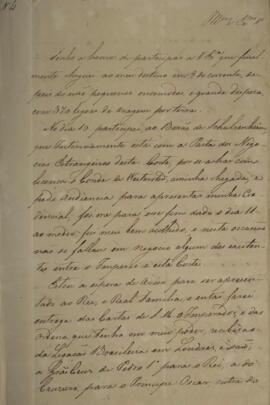 Nº 4
Illmo. e Exmo. Sr.
Tenho a honra de participar a V. Exa. que final-
mente cheguei ao meu destino em 9 do corrente, de-
pois de não pequenos incommodos, e grande despeza,
com 370 legoas de viagem por terra.
No dia 10 participei ao Barão de
que interinamente está com a Pasta dos Ne-
gocios Estrangeiros desta Corte, por se achar com
licença o Conde de Wetterstedt, a minha chegada, e
pedi Audiencia para apresentar minha Cre-
dencial, foi me para esse fim dado o dia 11
ao meio dia fui mui bem acolhido, e nesta occasião
não se fallou em negocio algum dos existen-
tes entre o Imperio e esta Corte.
Estou a espera de Aviso para ser apresen-
tado ao Rei, e Real Familia, e então farei
entrega das Cartas de S. M. o Imperador, e das
Ordens que tenho em meu poder, recebidas
da Legação Brasileira em Londres, e são,
a Grão Cruz de Pedro 1º para o Rei, a do
Cruzeiro para o Principe Oscar, outra do